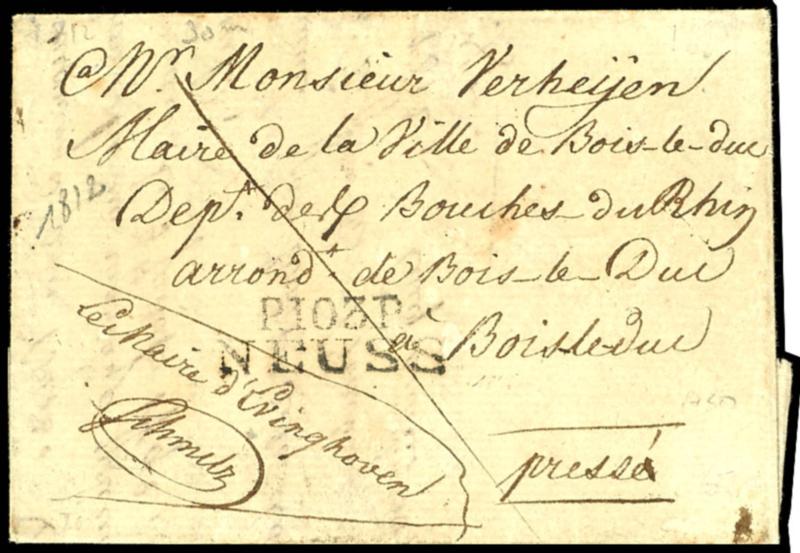 1812
A Mr Monsieur Verheÿen
Maire de la Ville de Bois-le-duc
1812
Dept. des Bouches-du Rhin
arrondt de Bois-le-Duc
P103P
NEUSS
à Bois-le-duc
Le Maire d'Evinghoven
Schmitz
pressé